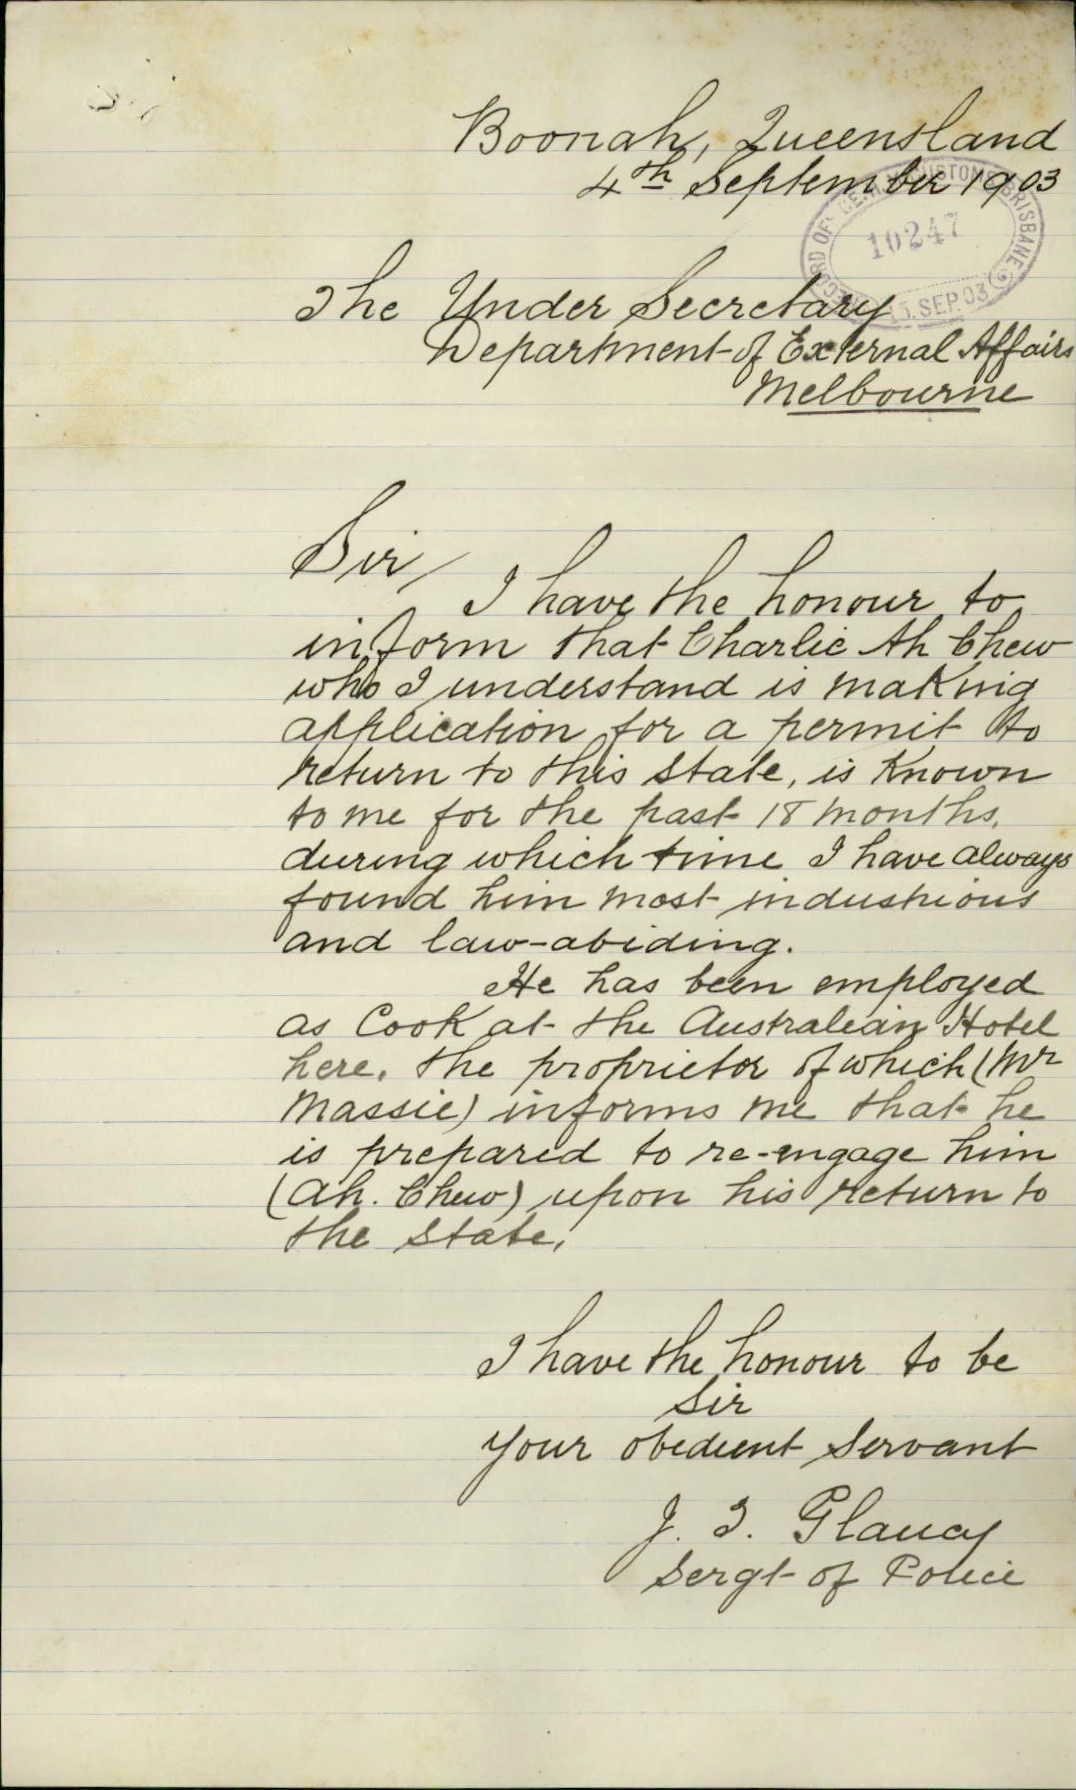 Boonah, Queensland
4th September 1903
RECORD OFF CUSTOMS BRISBANE
10247
SEP. 03
The Under Secretary
Department of External Affairs
Melbourne
Sir/
I have the honour to
inform that Charlie Ah Chew
who I understand is making
application for a permit to
return to this State, is known
to me for the past 18 months,
during which time I have always
found him most industrious
and law-abiding.
He has been employed
as Cook at the Australian Hotel
here, the proprietor of which (Mr
Massie) informs me that he
is prepared to re-engage him
(Ah. Chew) upon his return to
the State.
I have the honour to be
Sir
Your obedient Servant
Sergt of Police